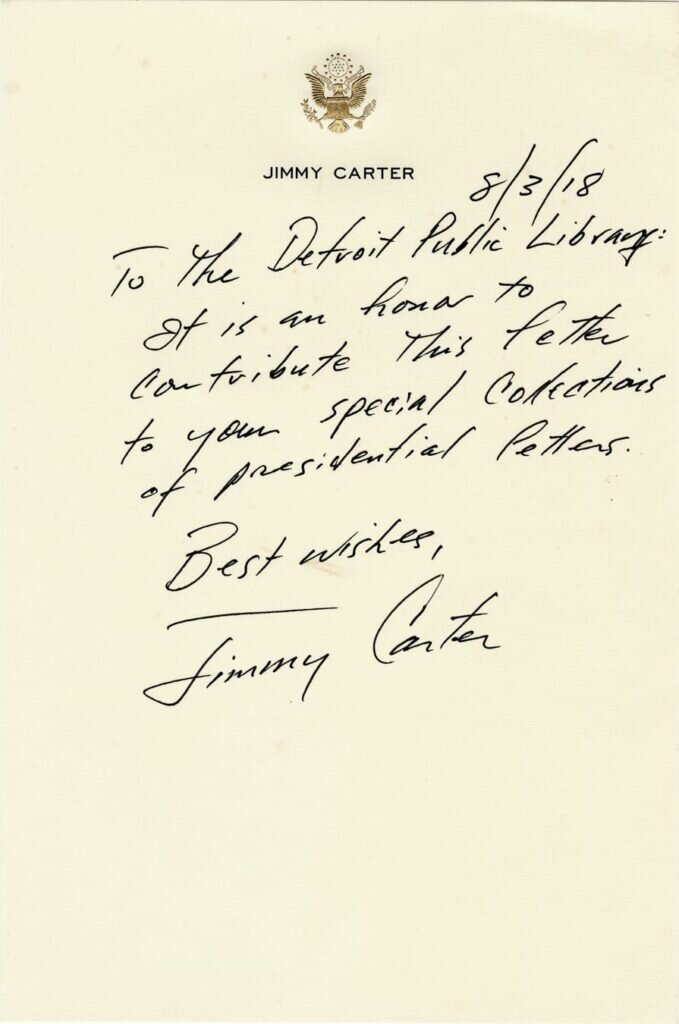 JIMMY CARTER
8/3/18
To the Detroit Public Library:
It is an honor to
contribute this letter
to your special collections
of presidential letters.
Best wishes,
Jimmy Carter